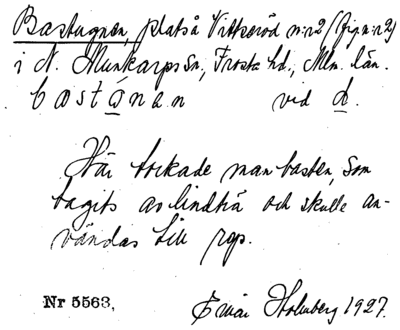 Bastugnen, plats å Vittseröd n:r 2 (fig. n:r 2)
i N. Munkarps sn, Frosta hd., Mlm. län.
bastánan vid d.
Här torkade man basten, som
tagits av lindträ och skulle an-
vändas till rep.
Nr 5563, Einar Holmberg 1927.